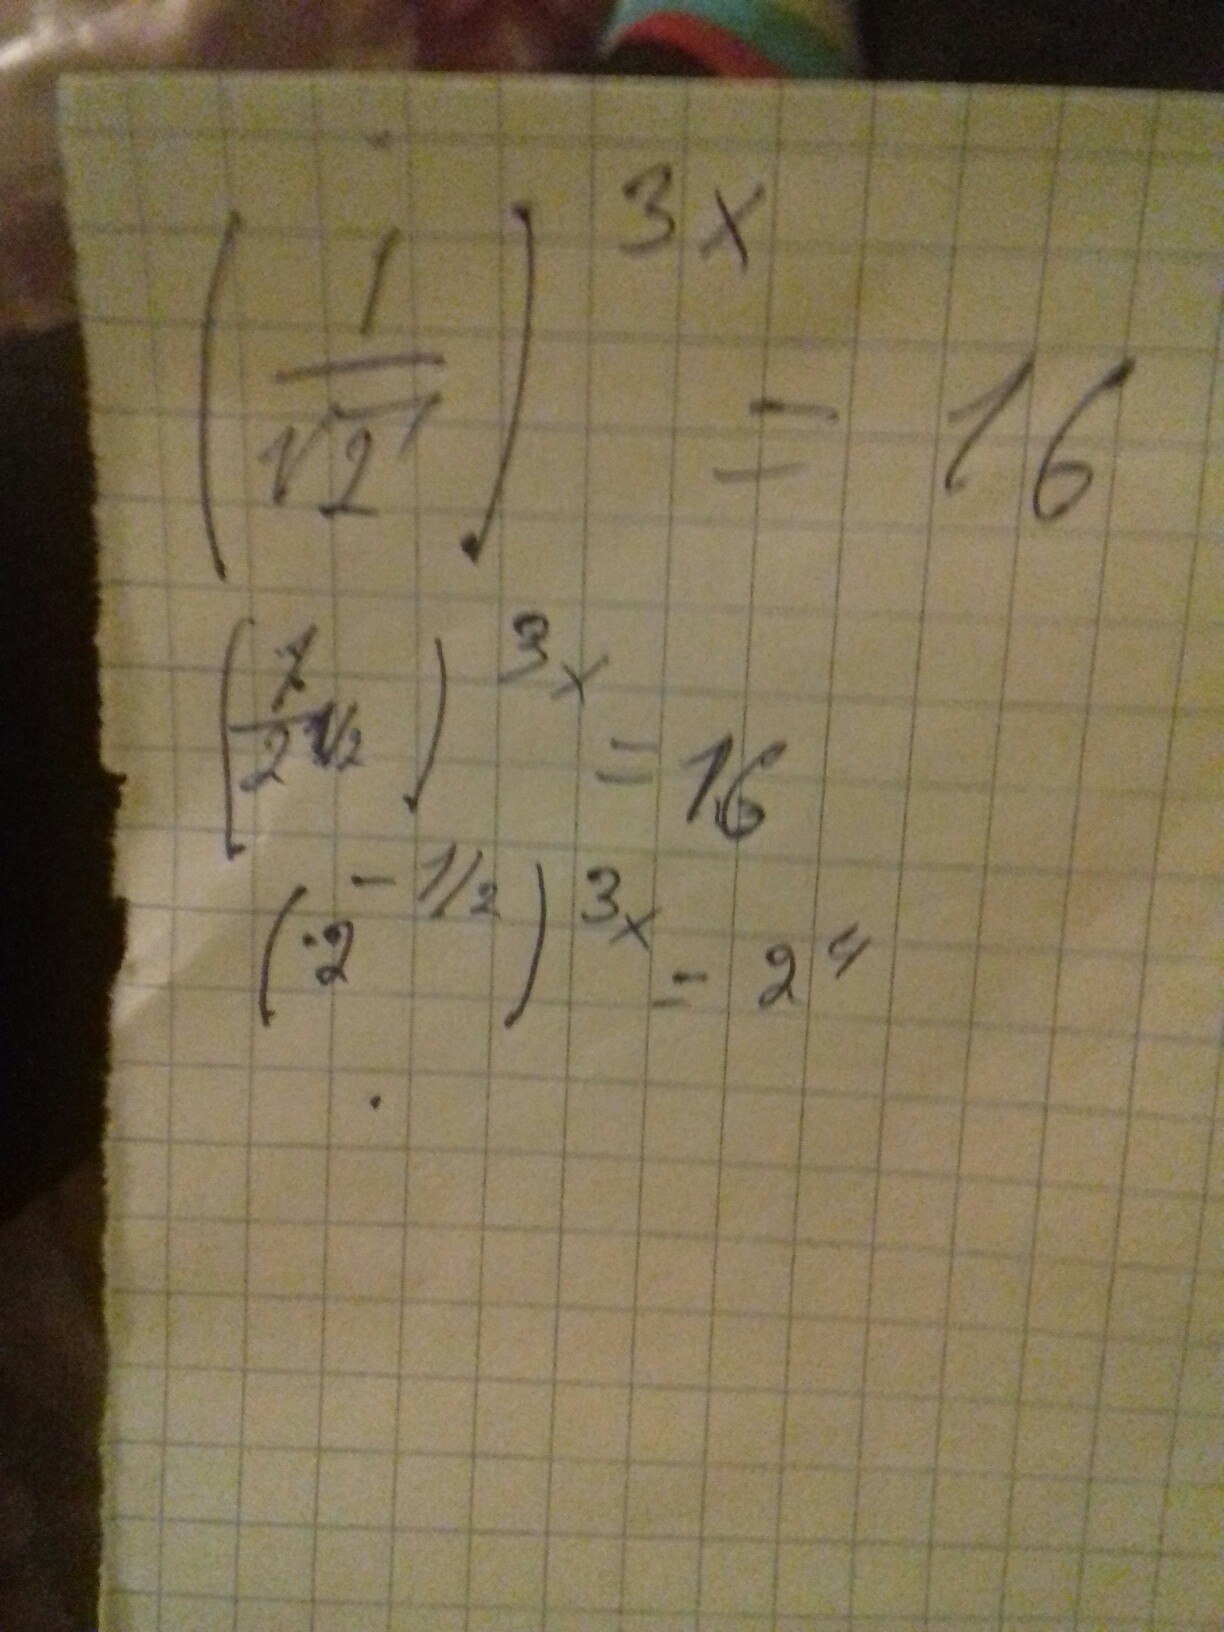 (1/√2)^3x = 16
(1/2^1/2)^3x = 16
(2^-1/2)^3x = 2^4